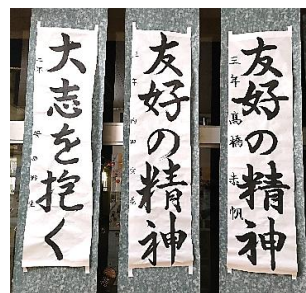 友好の精神
三年 高橋未帆
友好の精神
大志を抱く